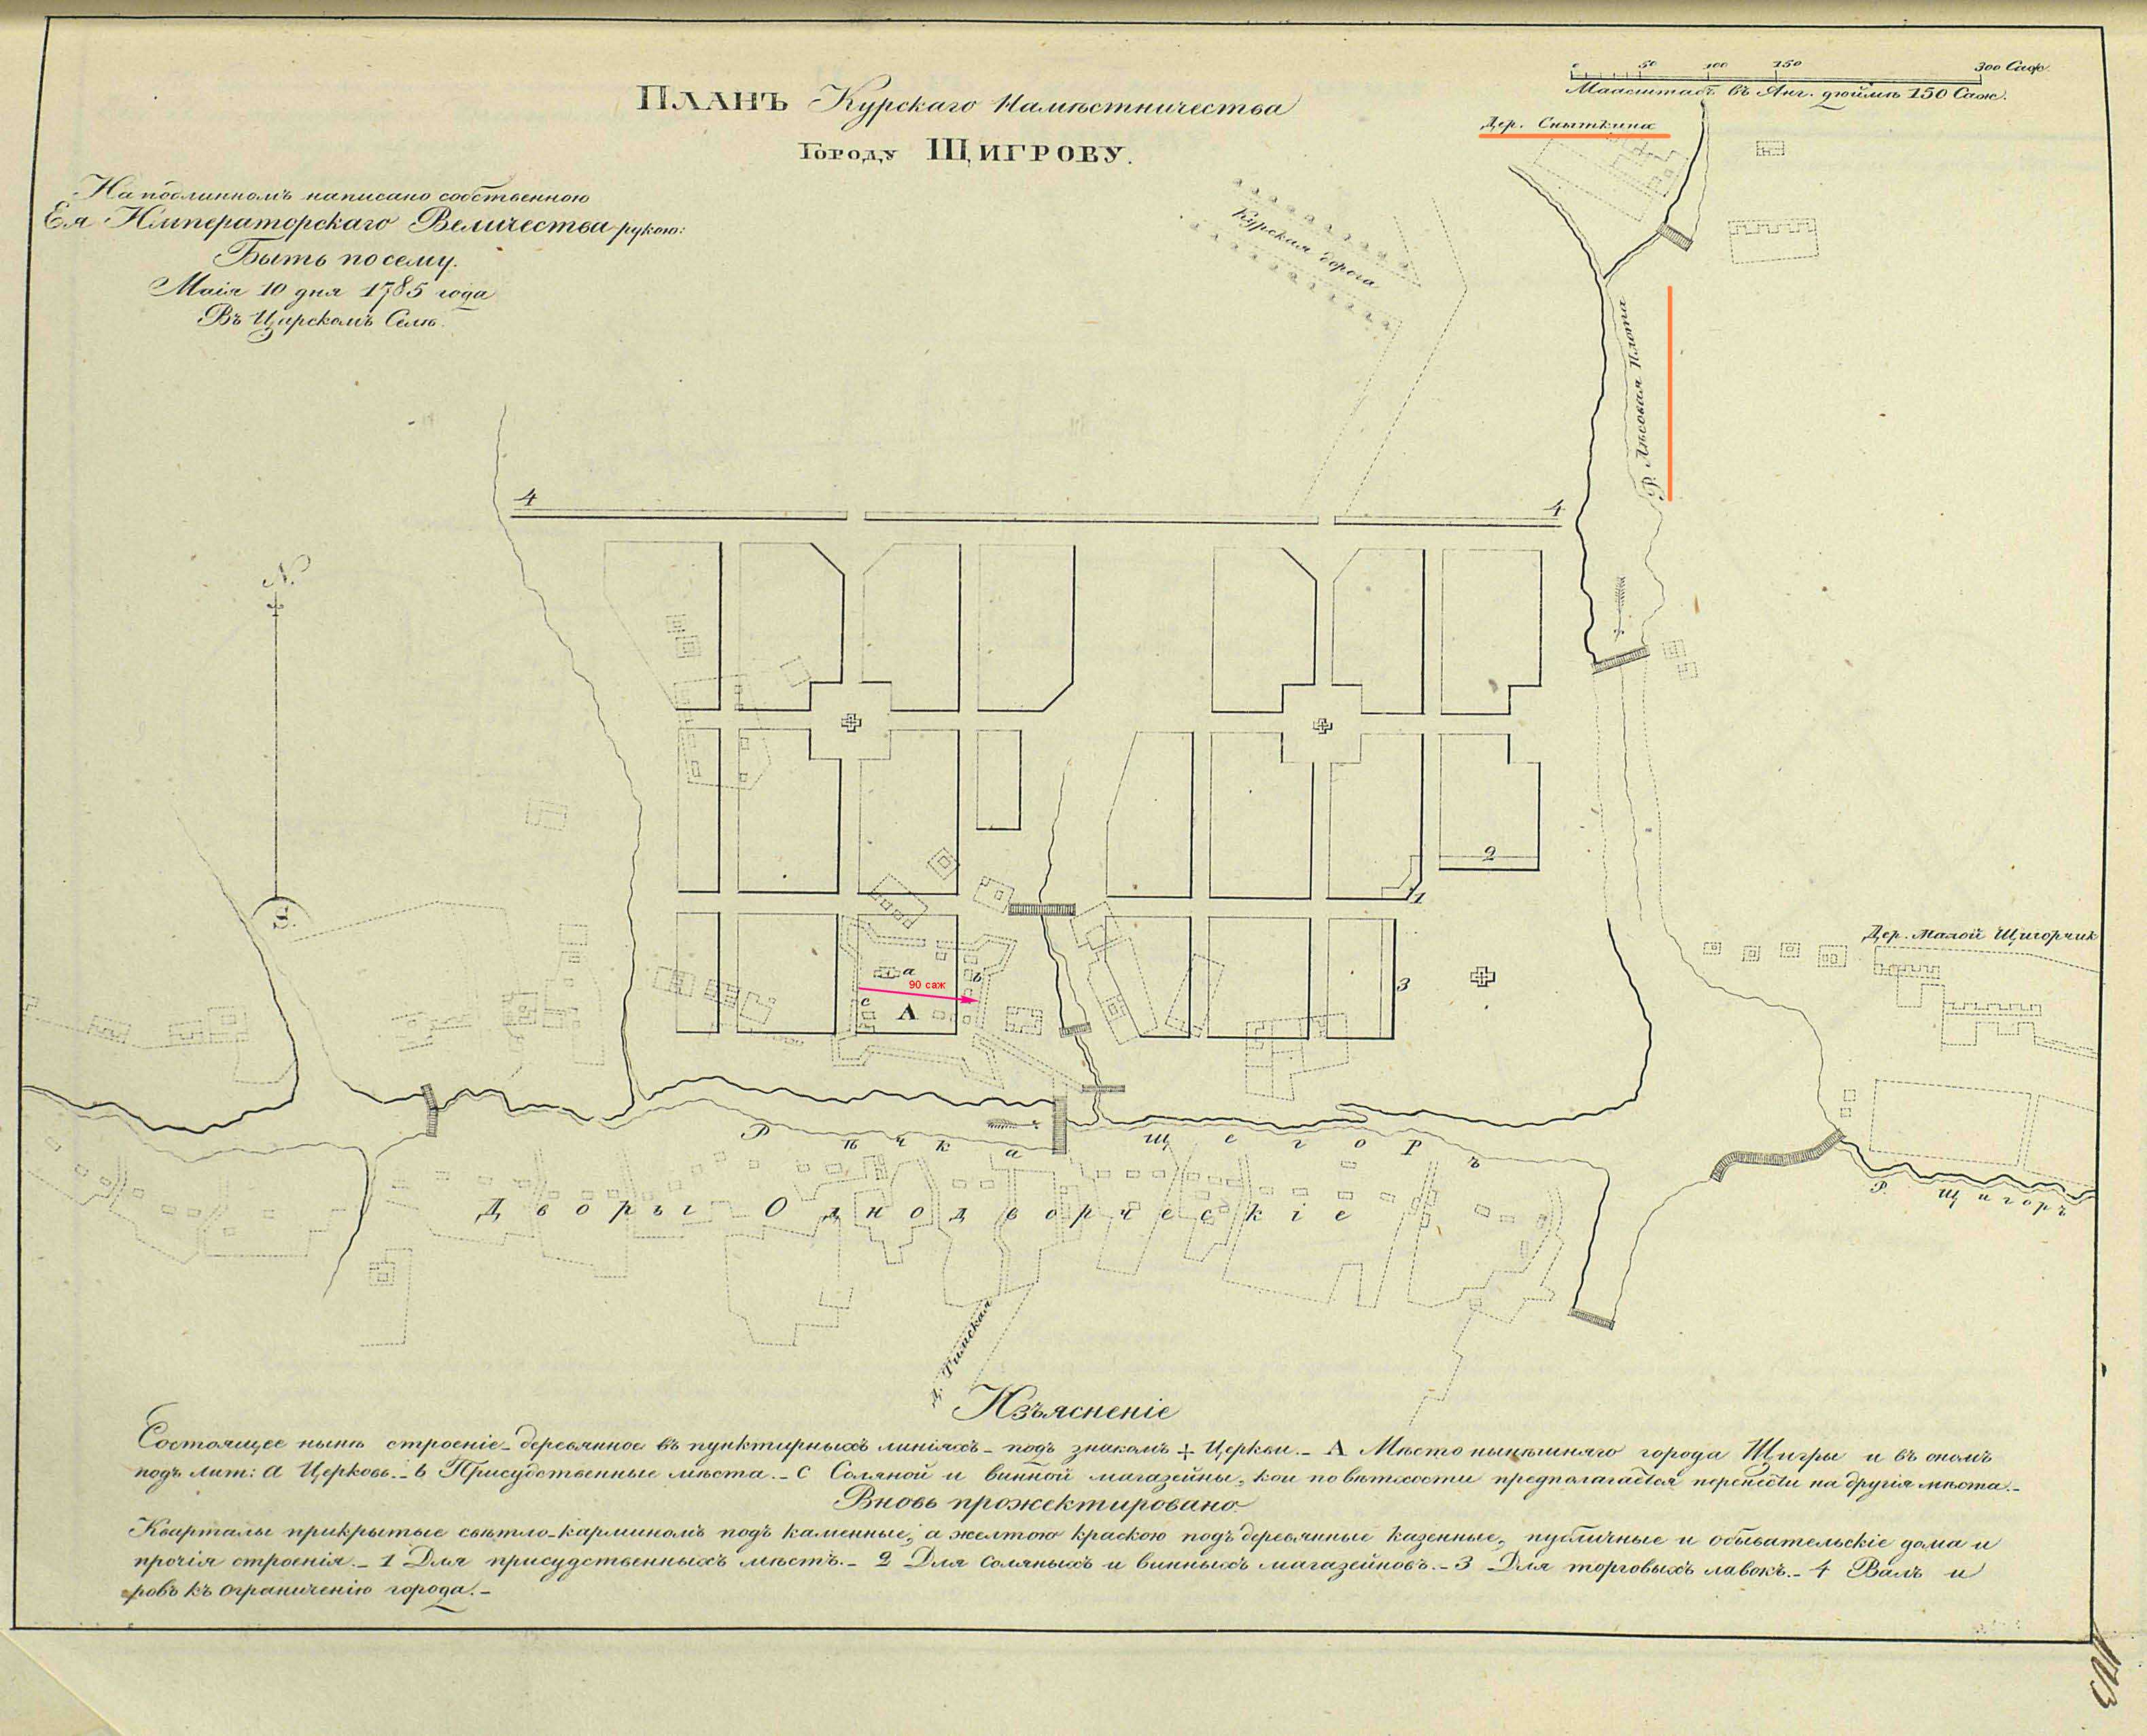 0 50 100 150 300 Саж.
Маасштабъ въ Анг. дюймѣ 150 Саж.
ПЛАНЪ Курскаго Намѣстничества
Городу ЩИГРОВУ.
Дер. Сныткина
На подлинномъ написано собственною
Ея Императорскаго Величества рукою:
Быть по сему.
Маія 10 дня 1785 года
Въ Царскомъ Селѣ.
Курская дорога
Р. Лѣсовая Плота
4
4
N.
S.
2
1
Дер. Малой Щигорчик
a
b
90 саж
c
A
3
Рѣчка Щегоръ
Р. Щигоръ
Дворы Однодворческіе
д. Римская
Изъясненіе
Состоящее нынѣ строеніе деревянное въ пунктирныхъ линіяхъ - подъ знакомъ + Церкви. - А Мѣсто нынѣшняго города Щигры и въ ономъ
подъ лит: а Церковь. - b Присудственные мѣста. - c Соляной и винной магазейны, кои по вѣтхости предполагается перенести на другія мѣста. -
Вновь прожектировано
Кварталы прикрытые свѣтло-карминомъ подъ каменные, а желтою краскою подъ деревянные казенные, публичные и обывательскіе дома и
прочія строенія. - 1 Для присудственныхъ мѣстъ. - 2 Для Соляныхъ и винныхъ магазейновъ. - 3 Для торговыхъ лавокъ. - 4 Валъ и
ровъ къ ограниченію города. -